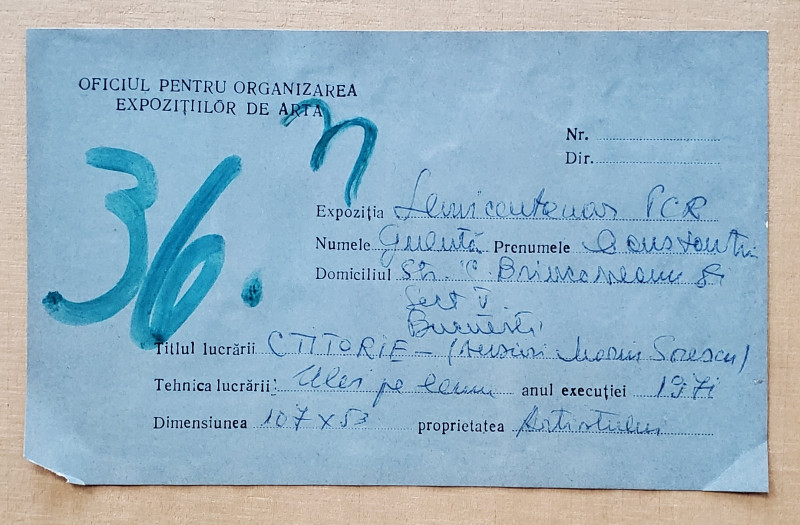 OFICIUL PENTRU ORGANIZAREA
EXPOZIȚIILOR DE ARTA
36.
Nr.
Dir.
Expoziția Semicentenar PCR
Numele Prenumele Constantin
Domiciliul Str. C. Brincoveanu
Sect V
București
Titlul lucrării CTITORIE – (versuri Marin Sorescu)
Tehnica lucrării: Ulei pe lemn anul execuției 1971
Dimensiunea 107 x 53 proprietatea Artistului